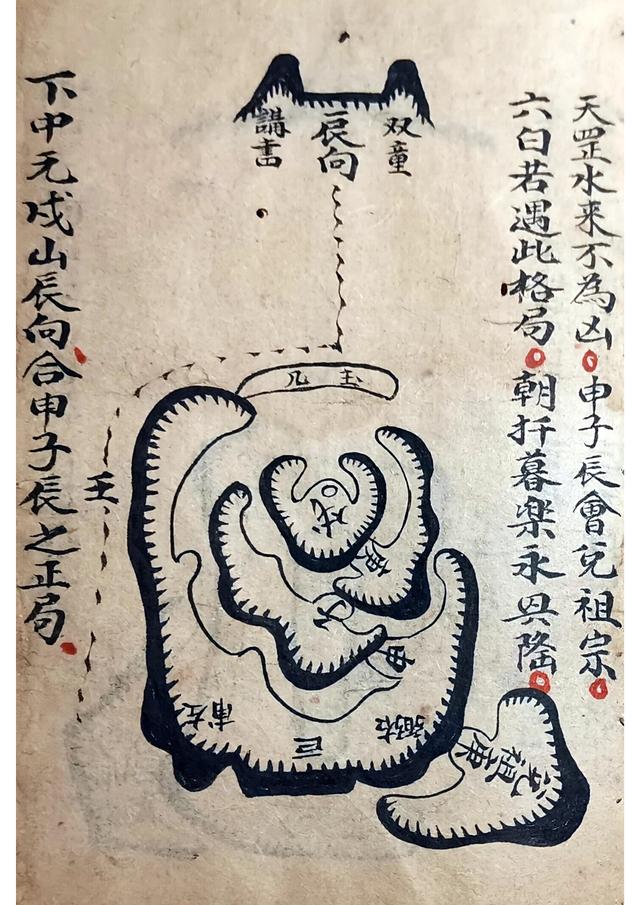 天罡水来不為凶申子辰會兌祖宗
六白若遇此格局朝扦暮樂永興隆
双童
辰向
講書
玉几
壬
戌
庚
申
右弼
巨
左甫
兌祖庚
下中元戌山辰向合申子辰之正局